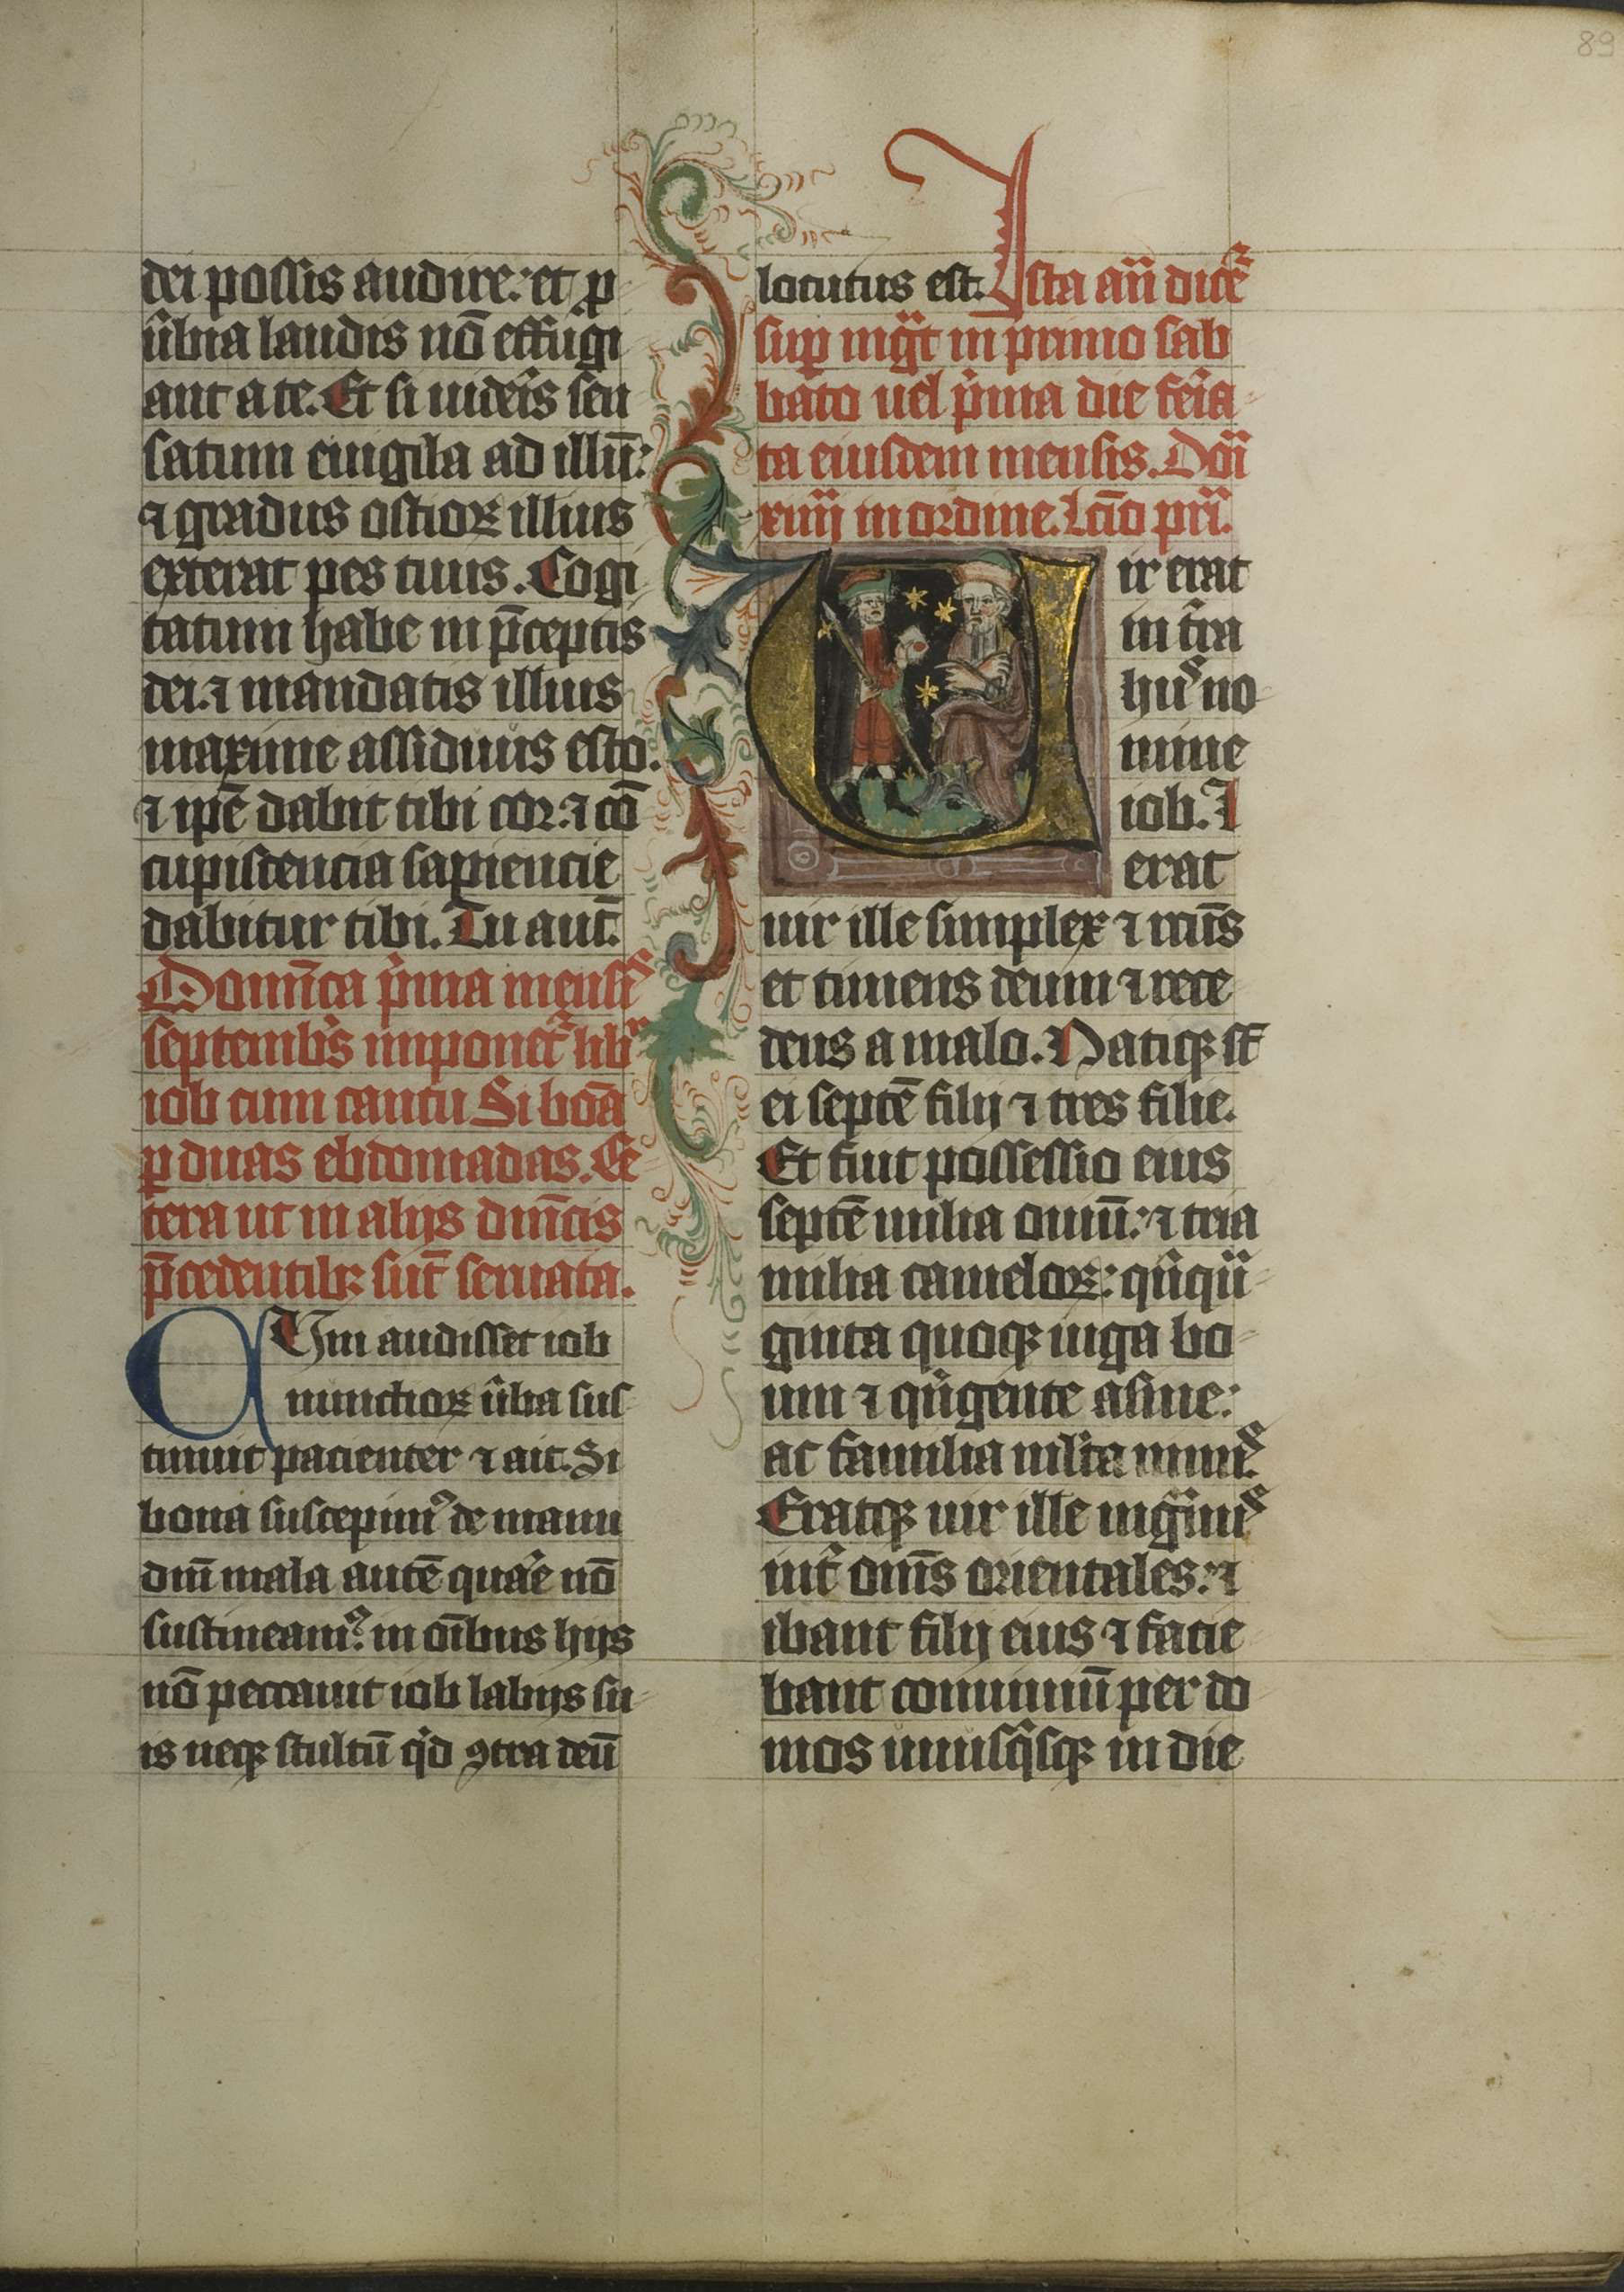 89
dei possis audire: et ꝓ
ũbia laudis nõ effugi
ant a te. Et si uideris sen
satum euigila ad illũ:
⁊ gradus ostioꝝ illius
exterat pes tuus. Cogi
tatum habe in p̄ceptis
dei. ⁊ mandatis illius
maxime assiduus esto.
⁊ ip̄e dabit tibi cor. ⁊ cõ
cupiscencia sapiencie
dabitur tibi. Tu aut̄.
Domīca p̍ma mensꝭ
septembꝭ imponet᷑ lib᷑
iob cum cantu Si bõa
ꝑ duas ebdomadas. Ce
tera ut in alijs dnĩcis
p̄cedentibꝫ sũt seruata.
Cum audisset iob
nunctioꝝ ũba sus
tinuit pacienter ⁊ ait. Si
bona suscepimꝰ de manu
dnĩ mala autẽ quare nõ
sustineamꝰ. in oĩbus hijs
nõ peccauit iob labijs su
is neqꝫ stultũ qͥd ꝯtra deũ
locutus est. Ista an̄ dicet᷑
sup mgt̄ in primo sab
bato uel p̍ma die feria
ta eiusdem mensis. Dom̄
xiiij in ordine. Lcĩo pri.
Uir erat
in t̄ra
husꝭ no
mine
iob. ⁊
erat
uir ille simplex ⁊ rectꝭ
et timens deum ⁊ rece
dens a malo. Natiqꝫ st̄
ei septẽ filij ⁊ tres filie.
Et fuit possessio eius
septẽ milia ouiũ: ⁊ tria
milia cameloꝝ: qͥnqͣ
ginta quoqꝫ iuga bo
um ⁊ qͥngente asine:
ac familia ml̃ta nimꝭ.
Eratqꝫ uir ille mg̃nꝭ
int̄ om̄s orientales: ⁊
ibant filij eius ⁊ facie
bant conuiuiũ per do
mos unusqͥsqꝫ in die